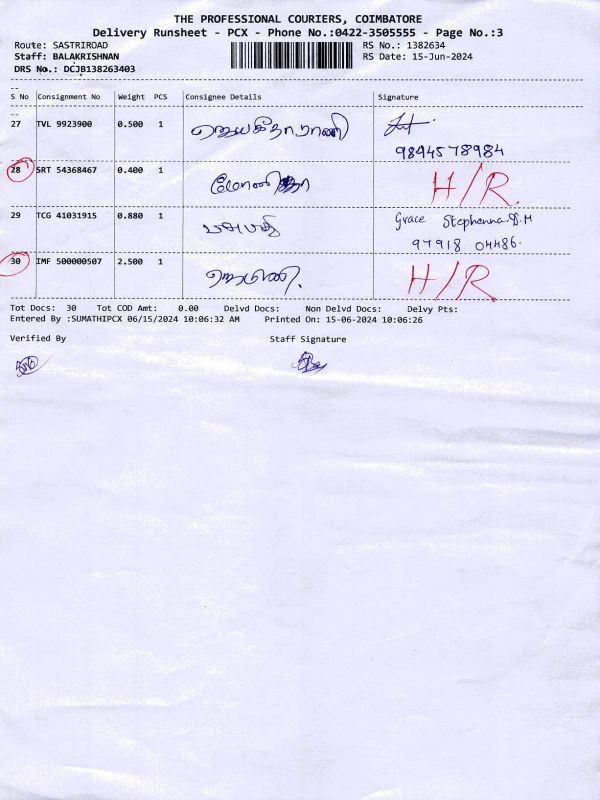 THE PROFESSIONAL COURIERS, COIMBATORE
Delivery Runsheet - PCX - Phone No.:0422-3505555 - Page No.:3
Route: SASTRIROAD
RS No.: 1382634
Staff: BALAKRISHNAN
RS Date: 15-Jun-2024
DRS No.: DCJB138263403
S No Consignment No Weight PCS Consignee Details Signature
27 TVL 9923900 0.500 1 ஜெயகீதாராணி
9894578984
28 SRT 54368467 0.400 1 H/R.
29 TCG 41031915 0.880 1 பசுபதி Grace Stephenna.D.M
97918 04486.
30 IMF 500000507 2.500 1 H/R.
Tot Docs: 30 Tot COD Amt: 0.00 Delvd Docs: Non Delvd Docs: Delvy Pts:
Entered By :SUMATHIPCX 06/15/2024 10:06:32 AM Printed On: 15-06-2024 10:06:26
Verified By Staff Signature